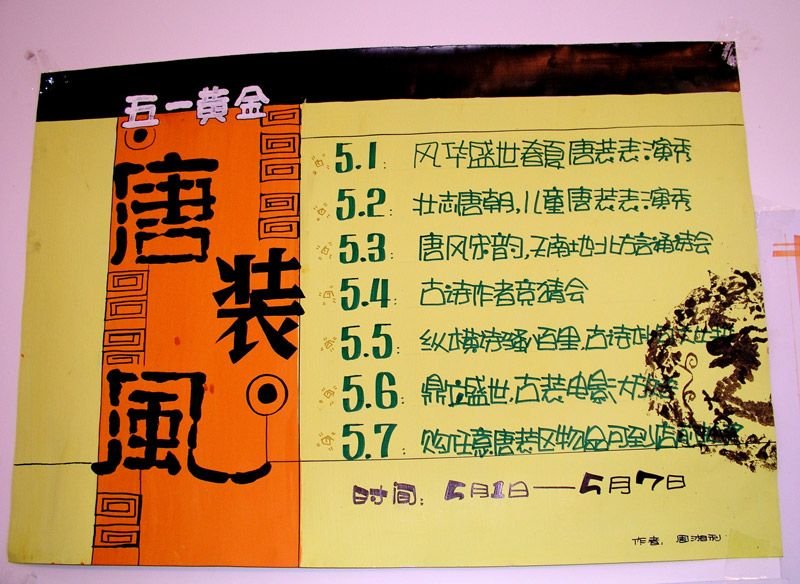 五一黄金
唐
装
風
5.1: 风华盛世春夏唐装表演秀
5.2: 壮志唐朝,儿童唐装表演秀
5.3: 唐风宋韵,天南地北方言诵诗会
5.4: 古诗作者竞猜会
5.5: 纵横诗骚百里,古诗
5.6: 鼎立盛世,古装电影大放
5.7: 购任意唐装区物品可到
时间: 5月1日——5月7日
作者: